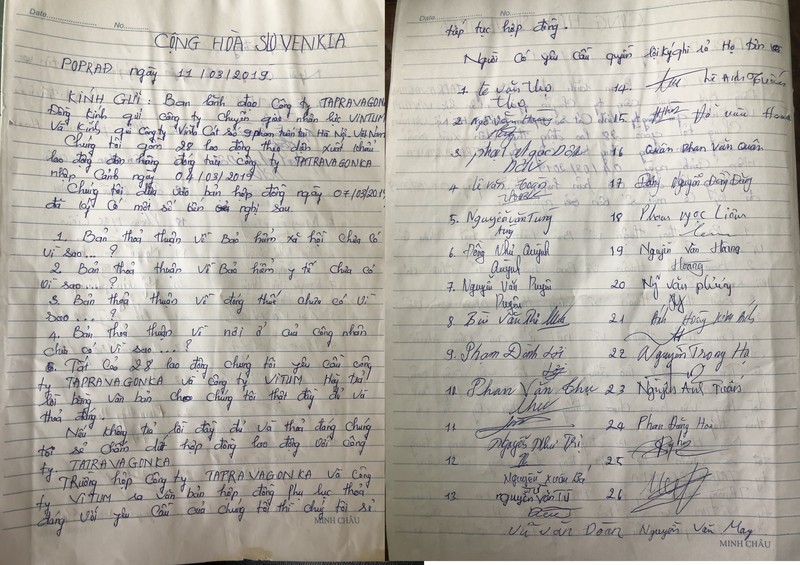 Date No.
CỘNG HÒA SLOVENKIA
POPRAD ngày 11/03/2019.
KÍNH GỬI: Ban lãnh đạo Công ty TAPRAVAGON
Đồng kính gửi công ty chuyển giao nhân lực VINTUM
Và kính gửi công ty Vĩnh Cát số 9 phạm tuấn tài Hà Nội. Việt Nam
Chúng tôi gồm 28 lao động theo diện xuất khẩu
lao động đơn hàng đóng tàu công ty TATRAVAGONKA
nhập Cảnh ngày 04/03/2019
Chúng tôi dựa vào bản hợp đồng ngày 07/03/2019
đã ký Có một số nghi sau.
1. Bản thoả thuận về Bảo hiểm xã hội chưa có
vì sao ... ?
2. Bản thoả thuận về Bảo hiểm y tế chưa có
vì sao ... ?
3. Bản thoả thuận về đóng thuế chưa có vì
sao ... ?
4. Bản thoả thuận về nơi ở của công nhân
chưa có vì sao ... ?
5. Tất Cả 28 lao động chúng tôi yêu cầu công
ty TAPRAVAGONKA và công ty VITUM Hãy trả
lời bằng văn bản cho chúng tôi thật đầy đủ và
thoả đáng.
Nếu không trả lời đầy đủ và thoả đáng chúng
tôi sẽ chấm dứt hợp đồng lao động với công
ty. TATRAVAGONKA
TRường hợp Công ty TAPRAVAGONKA và Công
ty VITUM ra văn bản hợp đồng phụ lục thoả
đáng với yêu cầu của chúng tôi thì chúng tôi sẽ
MINH CHÂU
Date No.
tiếp tục hợp đồng.
Người có yêu cầu quyền lợi ký ghi rõ Họ tên
1. Lê Văn Thọ
Thọ
2. Ngô Văn Hoàng
3. phạm Ngọc Đức
4. Lê Văn Toàn
5. Nguyễn Văn Tùng
Tùng
6. Đồng Như Quỳnh
Quỳnh
7. Nguyễn Văn Duyên
Duyên
8. Bùi Văn
9. Phạm Đình Lợi
10. Phan Văn Thực
11
Nguyễn Như Thị
12
Nguyễn Xuân Bá
13 Nguyễn Văn TƯ
Vũ Văn Đoàn
14.
15
16 Quân Phan Văn Quân
17 Nguyễn Đăng
18 Phan Ngọc Liêm
19 Nguyễn Văn Hoàng
Hoàng
20
21 Anh Hoàng Kim Anh
22 Nguyễn Trọng Hạ
23 Nguyễn Anh Tuấn
24 Phan Đăng Hải
25
26
Nguyễn Văn May
MINH CHÂU